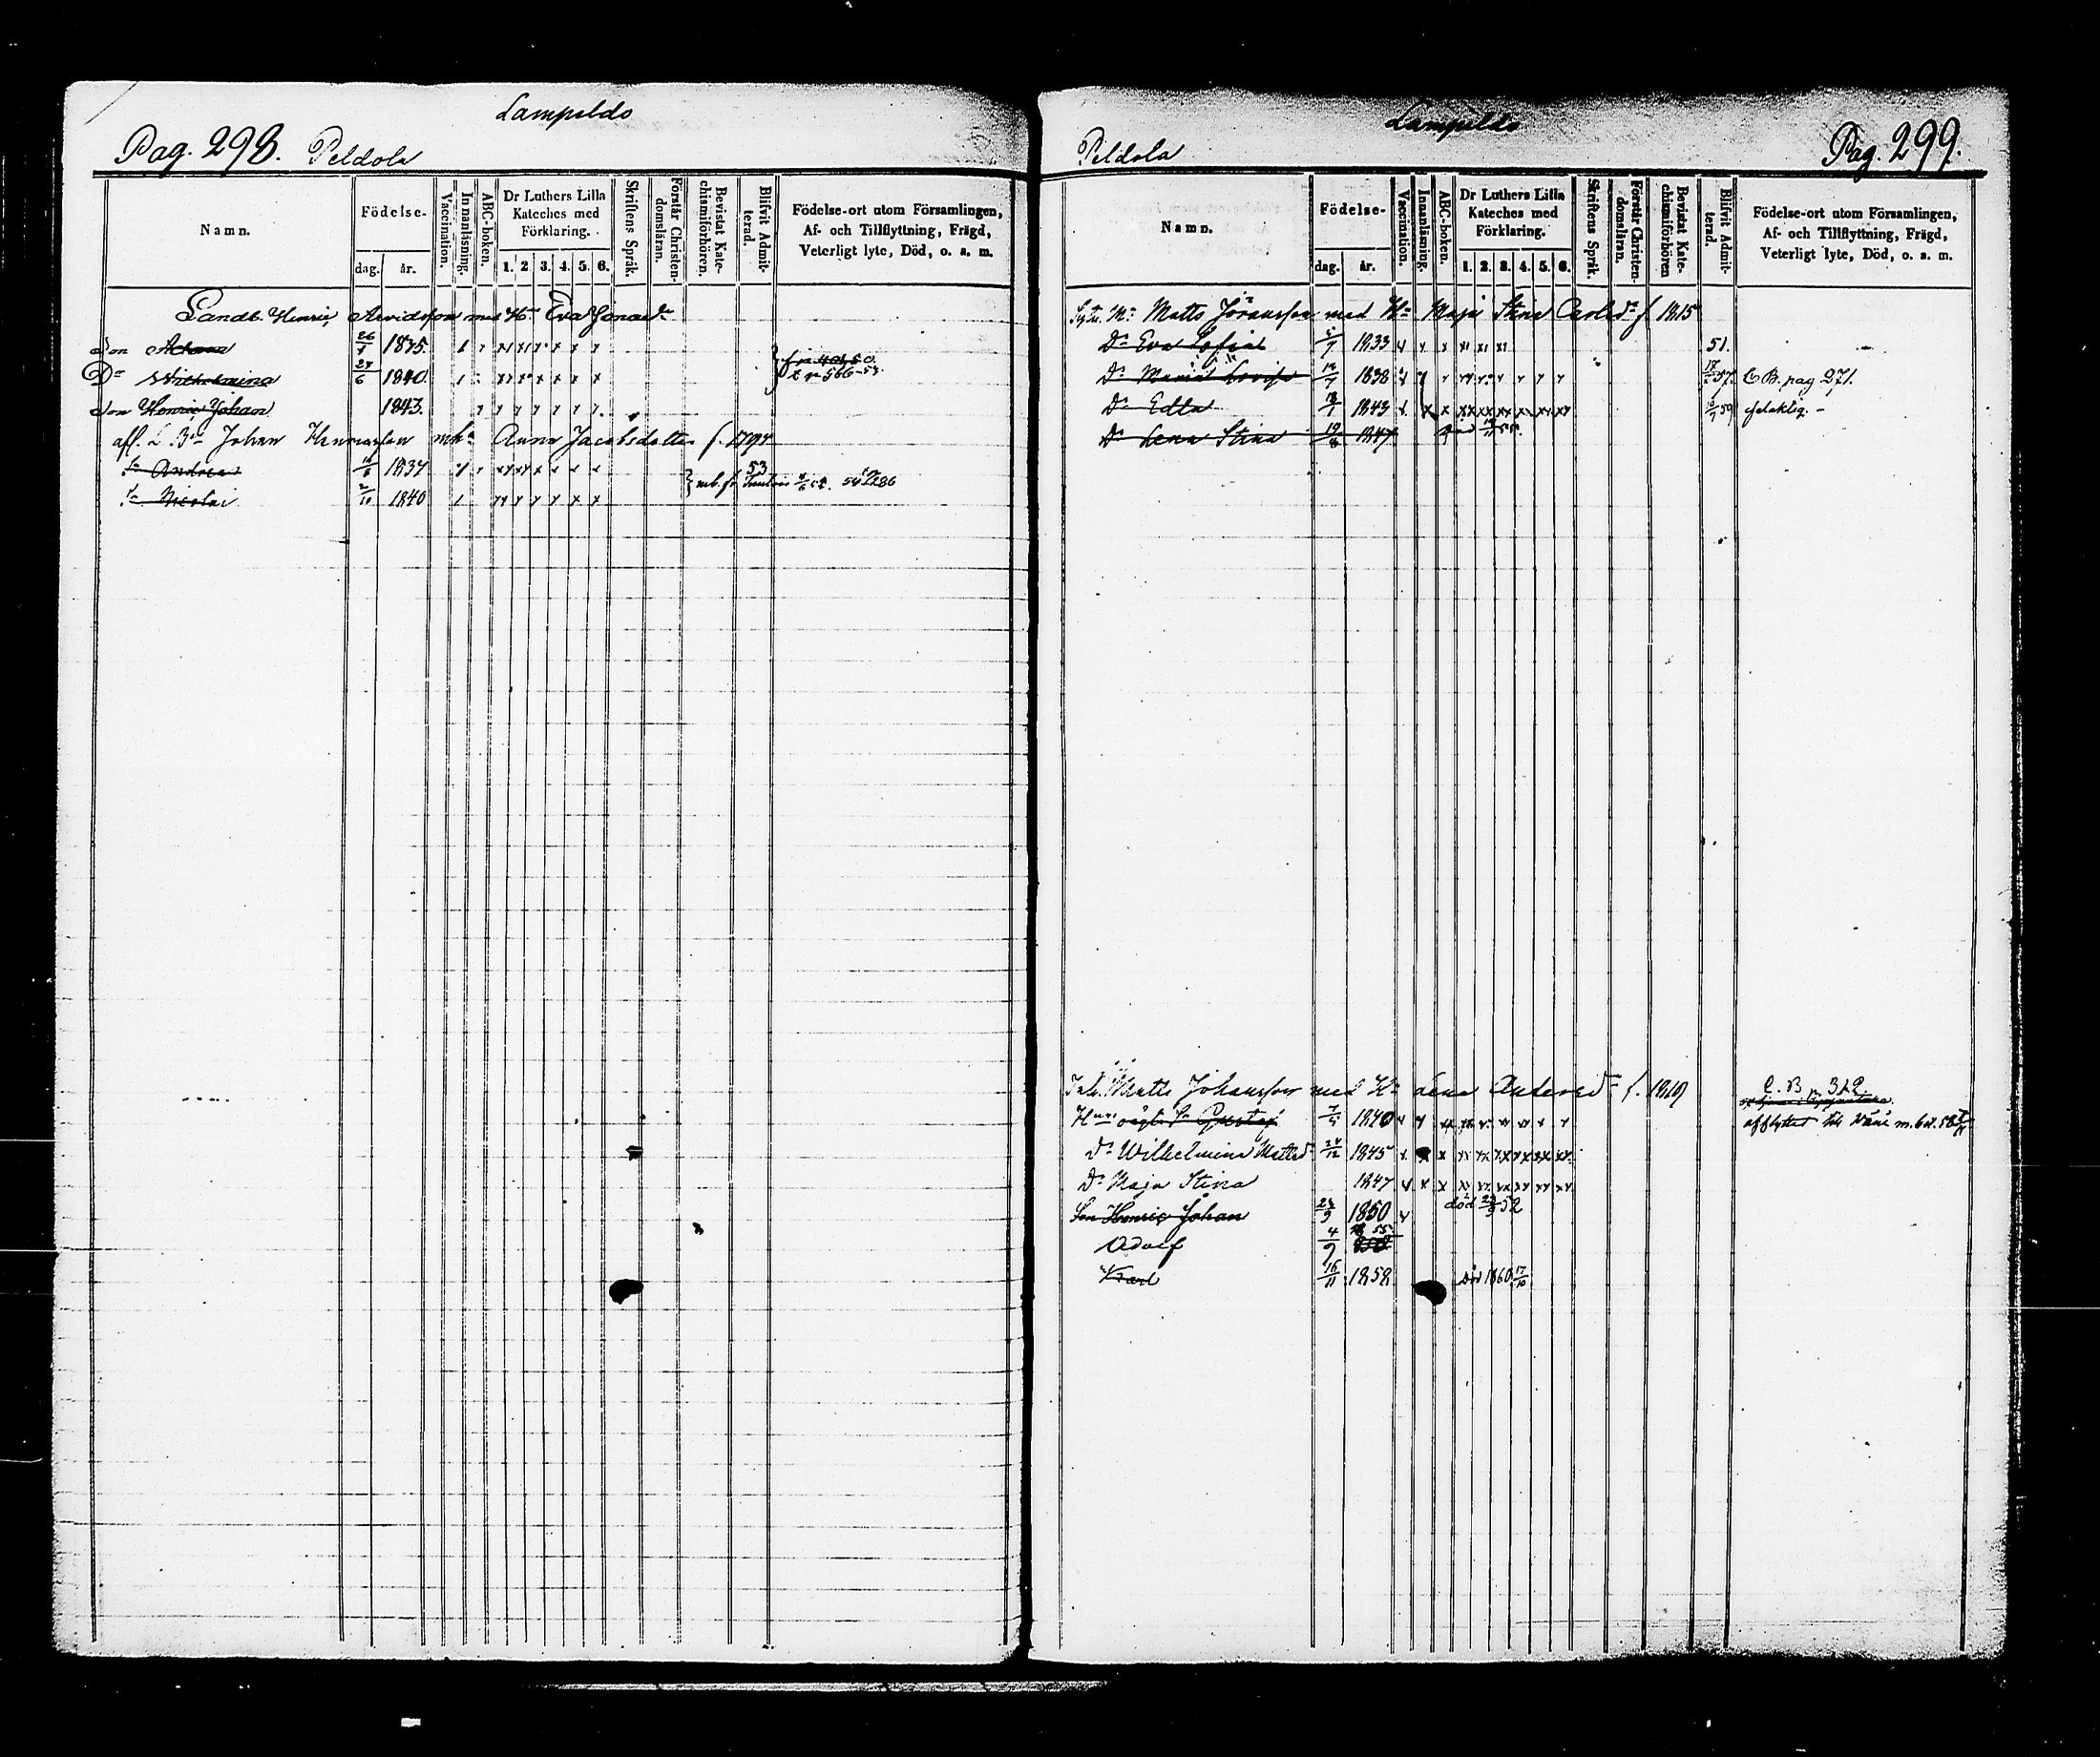 Lampoldo
Pag. 298. Peldola
Namn.
Födelse-
dag. år.
Vaccination.
Innanläsning.
ABC-boken.
Dr Luthers Lilla Kateches med Förklaring.
1. 2. 3. 4. 5. 6.
Skriftens Språk.
Förstår Christendomsläran.
Bevistat Katechismiförhören.
Blifvit Admitterad.
Födelse-ort utom Församlingen,
Af- och Tillflyttning, Frägd,
Veterligt lyte, Död, o. s. m.
Landb. Henric Arvidsson med Hu Eva Jonaed:
Son Adam 26/1 1835.
Dr Wilhelmina 27/6 1840.
Son Henric Johan 1843.
afl. Johan Henricsson mhu Anna Jacobsdotter f. 1794
Sn Andrea 1837 53
Sn Nicolai 2/11 1840
Lampoldo
Peldola Pag. 299.
Namn.
Födelse-
dag. år.
Vaccination.
Innanläsning.
ABC-boken.
Dr Luthers Lilla Kateches med Förklaring.
1. 2. 3. 4. 5. 6.
Skriftens Språk.
Förstår Christendomsläran.
Bevistat Katechismiförhören
Blifvit Admitterad.
Födelse-ort utom Församlingen,
Af- och Tillflyttning, Frägd,
Veterligt lyte, Död, o. s. m.
Matts Jöransson med Hu Maja Stina Carlsdr f 1815
Dr Eva Sofia 1833 51.
Dr Maria Lovisa 1838 57. C B. pag 271.
Dr Edla 1843 59
Dr Lena Stina 19/8 1847 död 55.
Matts Johansson med Hu Lena Andersdr f. 1819 C. B p 312.
Sn Gustaf 7/5 1840 afflyttad till
Dr Wilhelmina Mattsdr 24/12 1845
Dr Maja Stina 1847
Son Henric Johan 1850 död 52
Adolf 4/9 55
Karl 15/11 1858 död 1860 17/10